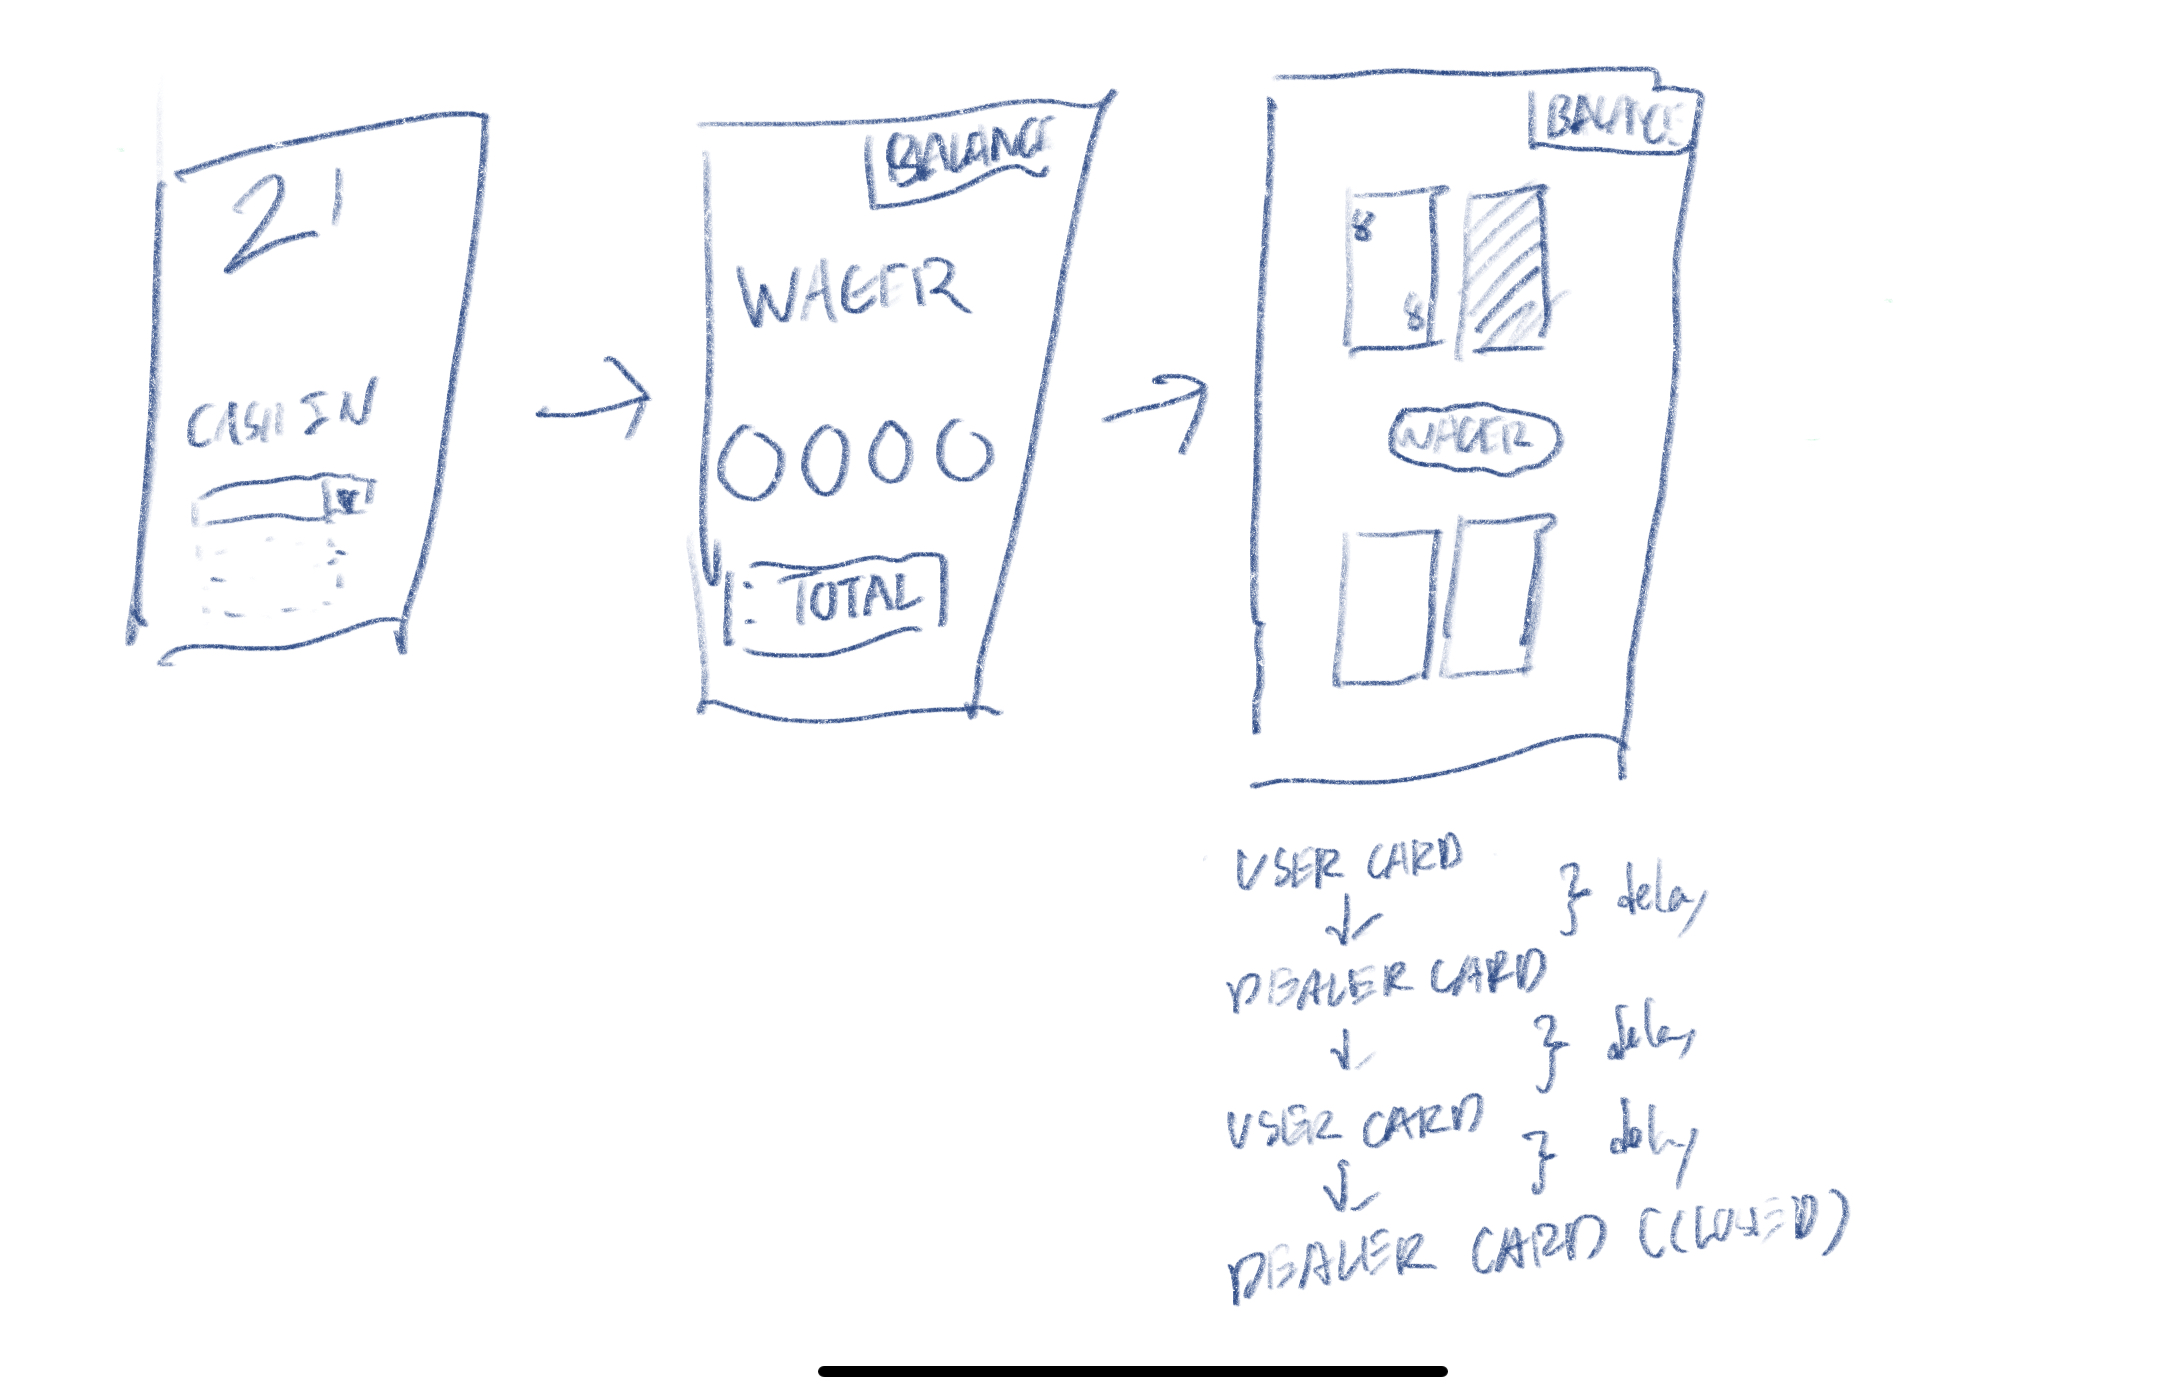 21
CASH IN
BALANCE
WAGER
TOTAL
BALANCE
8
8
WAGER
USER CARD
} delay
DEALER CARD
} delay
USER CARD
} delay
DEALER CARD (CLOSED)